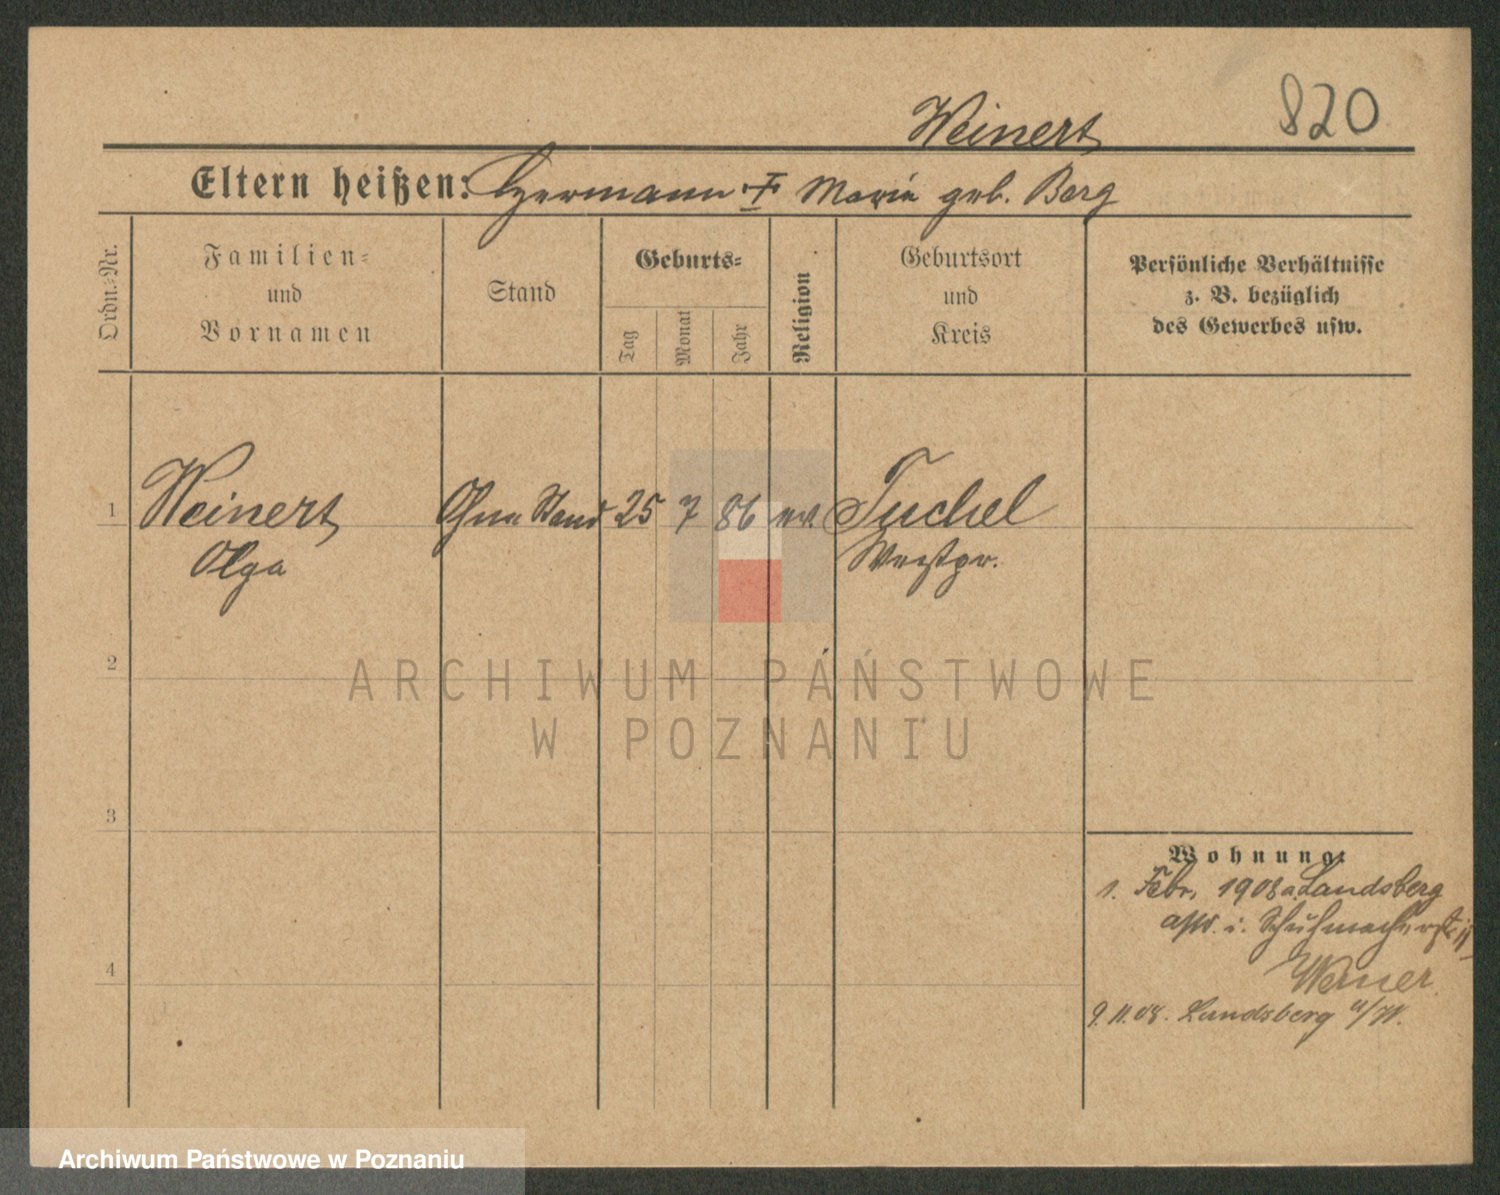 Weinert 820
Eltern heißen: Hermann † Marie geb. Berg
Ordn.-Nr.
Familien-
und
Vornamen
Stand
Geburts-
Tag
Monat
Jahr
Religion
Geburtsort
und
Kreis
Persönliche Verhältnisse
z. B. bezüglich
des Gewerbes usw.
1 Weinert Ohne Stand 25 7 86 ev. Tuchel
Olga Westpr.
2
ARCHIWUM PAŃSTWOWE
W POZNANIU
3
Wohnung:
1. Febr. 1908 a. Landsberg
i. Schuhmacherstr. 11
Werner
4
9.11.08. Landsberg a/W.
Archiwum Państwowe w Poznaniu